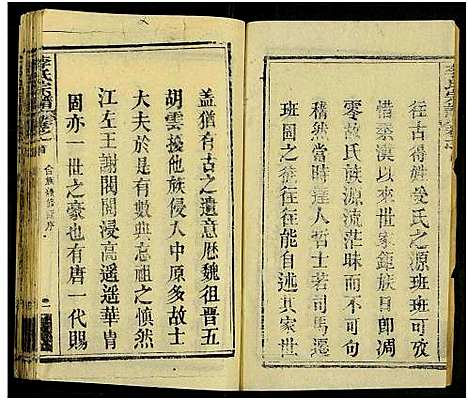 往古得姓受氏之源班班可攷
惜秦漢以來世家鉅族日即凋
零故氏族源流茫昧而不可復
稽然當時達人哲士若司馬遷
班固之徒往往能自述其家世
蓋猶有古之遺意歷魏徂晉五
胡雲擾他族侵入中原多故士
大夫於是有數典忘祖之慎然
江左王謝閥閱浸高遥遥華胄
固亦一世之豪也有唐一代賜
李氏宗譜